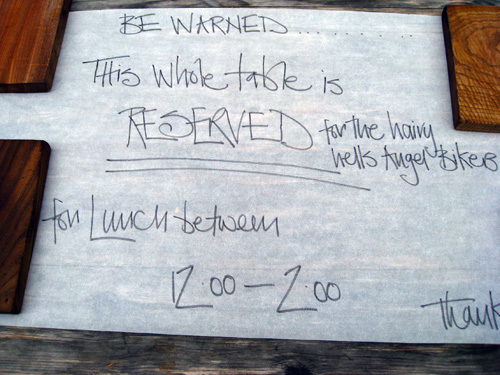 BE WARNED..........
This whole table is
RESERVED for the hairy
hells Angel Bikers
for Lunch between
12.00 - 2.00
Thank